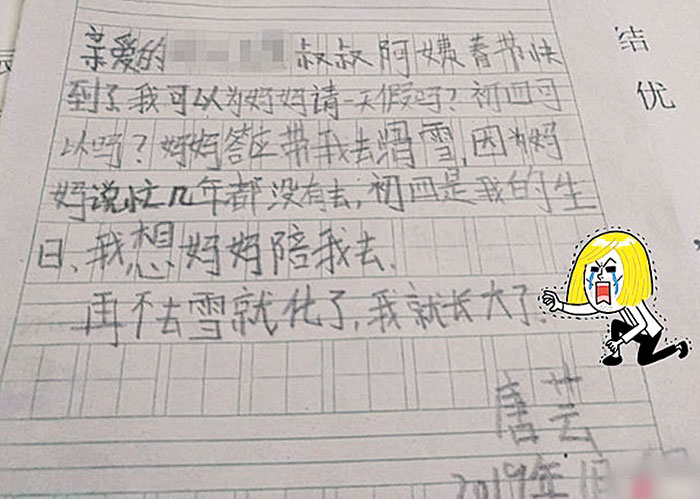 亲爱的 叔叔阿姨春节快
到了我可以为妈妈请一天假吗？初四可
以吗？妈妈答应带我去滑雪,因为妈
妈说忙几年都没有去,初四是我的生
日,我想妈妈陪我去.
再不去雪就化了,我就长大了.
唐芸
2019年
结
优